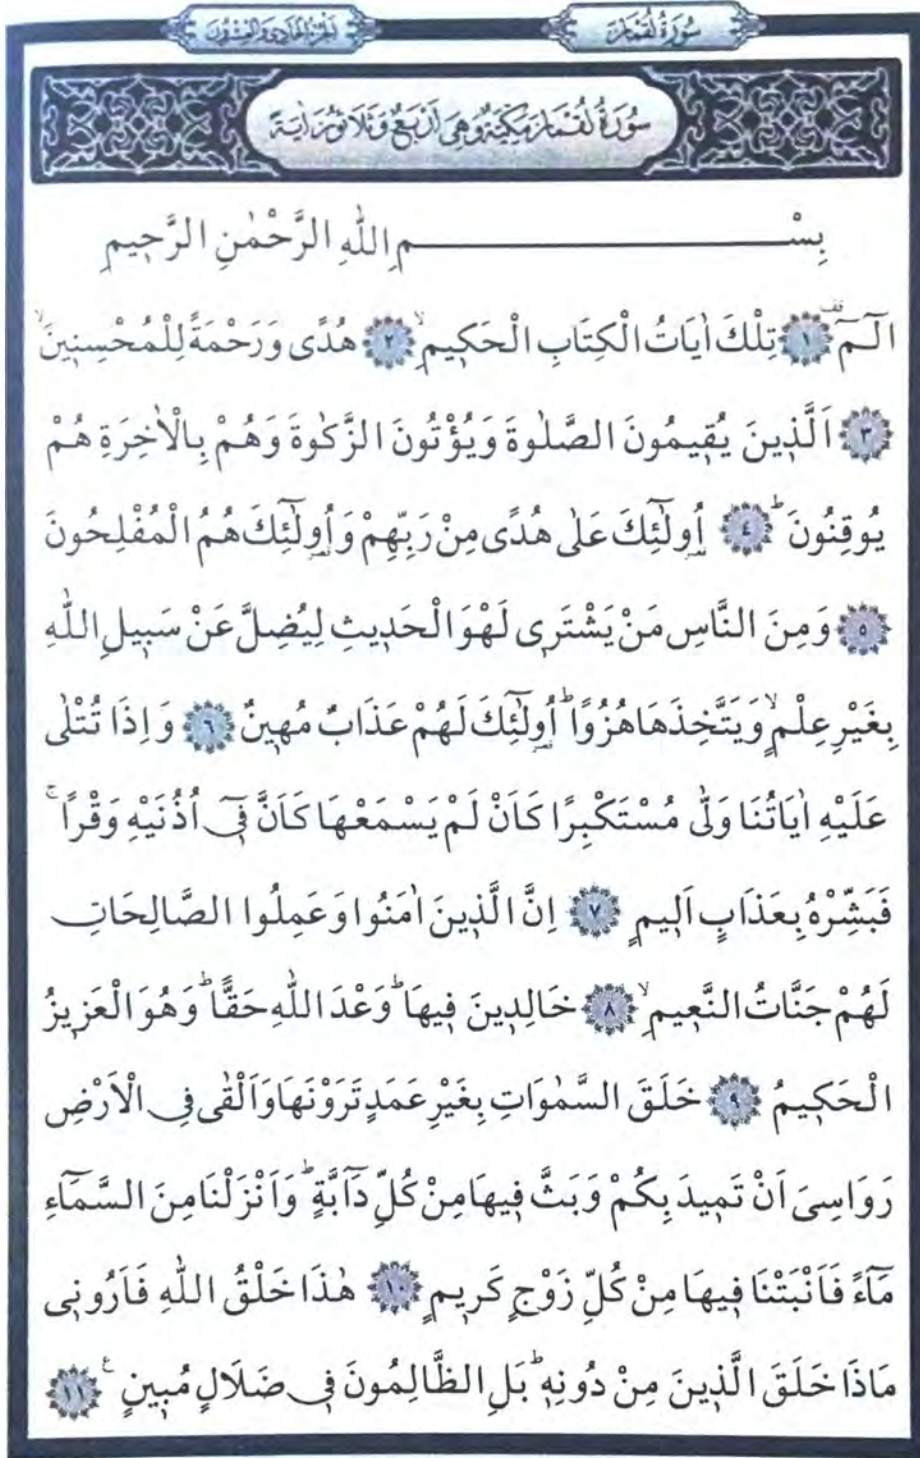 سُورَةُ لُقْمَانَ
اَلْجُزْءُ الْحَادِى وَالْعِشْرُونَ
سُورَةُ لُقْمَانَ مَكِّيَّةٌ وَهِىَ اَرْبَعٌ وَثَلَاثُونَ اٰيَةً
بِسْمِ اللّٰهِ الرَّحْمٰنِ الرَّحِيمِ
الٓمٓ ۚ ﴿١﴾ تِلْكَ اٰيَاتُ الْكِتَابِ الْحَكِيمِۙ ﴿٢﴾ هُدًى وَرَحْمَةً لِلْمُحْسِنِينَۙ
﴿٣﴾ اَلَّذِينَ يُقِيمُونَ الصَّلٰوةَ وَيُؤْتُونَ الزَّكٰوةَ وَهُمْ بِالْاٰخِرَةِ هُمْ
يُوقِنُونَۜ ﴿٤﴾ اُو۬لٰٓئِكَ عَلٰى هُدًى مِنْ رَبِّهِمْ وَاُو۬لٰٓئِكَ هُمُ الْمُفْلِحُونَ
﴿٥﴾ وَمِنَ النَّاسِ مَنْ يَشْتَرِى لَهْوَ الْحَدِيثِ لِيُضِلَّ عَنْ سَبِيلِ اللّٰهِ
بِغَيْرِ عِلْمٍۙ وَيَتَّخِذَهَا هُزُوًاۜ اُو۬لٰٓئِكَ لَهُمْ عَذَابٌ مُهِينٌ ﴿٦﴾ وَاِذَا تُتْلٰى
عَلَيْهِ اٰيَاتُنَا وَلّٰى مُسْتَكْبِرًا كَاَنْ لَمْ يَسْمَعْهَا كَاَنَّ فِٓى اُذُنَيْهِ وَقْرًاۚ
فَبَشِّرْهُ بِعَذَابٍ اَلِيمٍ ﴿٧﴾ اِنَّ الَّذِينَ اٰمَنُوا وَعَمِلُوا الصَّالِحَاتِ
لَهُمْ جَنَّاتُ النَّعِيمِۙ ﴿٨﴾ خَالِدِينَ فِيهَاۜ وَعْدَ اللّٰهِ حَقًّاۜ وَهُوَ الْعَزِيزُ
الْحَكِيمُ ﴿٩﴾ خَلَقَ السَّمٰوَاتِ بِغَيْرِ عَمَدٍ تَرَوْنَهَا وَاَلْقٰى فِى الْاَرْضِ
رَوَاسِىَ اَنْ تَمِيدَ بِكُمْ وَبَثَّ فِيهَا مِنْ كُلِّ دَٓابَّةٍۜ وَاَنْزَلْنَا مِنَ السَّمَٓاءِ
مَٓاءً فَاَنْبَتْنَا فِيهَا مِنْ كُلِّ زَوْجٍ كَرِيمٍ ﴿١٠﴾ هٰذَا خَلْقُ اللّٰهِ فَاَرُونِى
مَاذَا خَلَقَ الَّذِينَ مِنْ دُونِهِۜ بَلِ الظَّالِمُونَ فِى ضَلَالٍ مُبِينٍ ۟ ﴿١١﴾